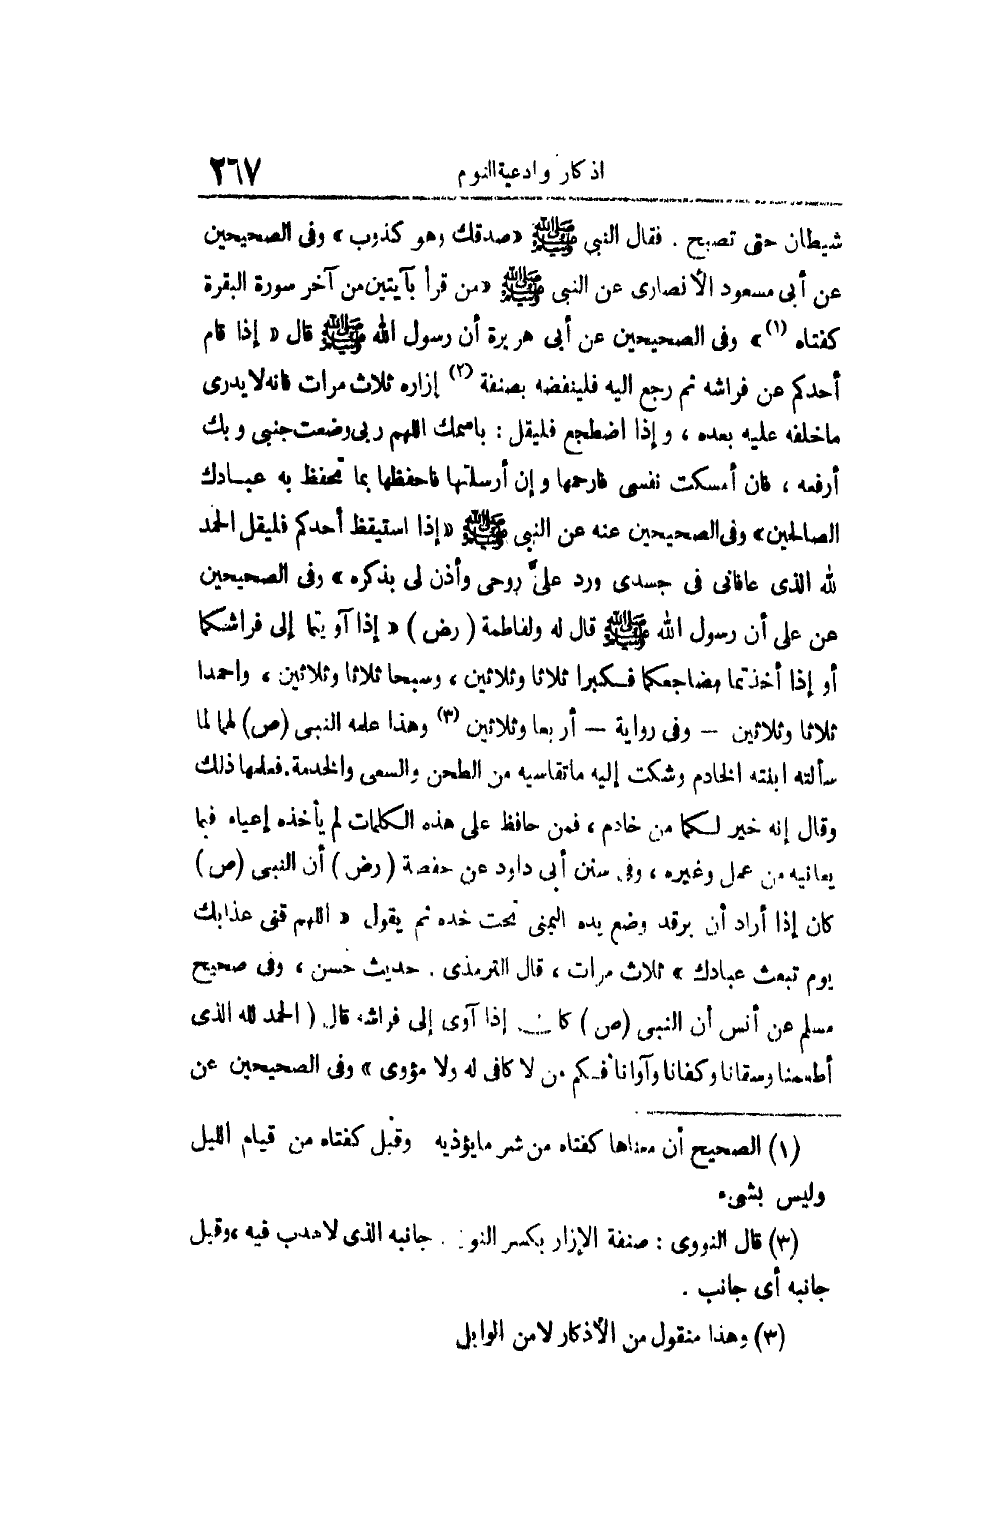 اذكار وادعية النوم ٢٦٧
شيطان حتى تصبح . فقال النبى ﷺ «صدقك وهو كذوب» وفى الصحيحين
عن أبى مسعود الأنصارى عن النبى ﷺ «من قرأ بآيتين من آخر سورة البقرة
كفتاه (١)» وفى الصحيحين عن أبى هريرة أن رسول الله ﷺ قال « إذا قام
أحدكم عن فراشه ثم رجع اليه فلينفضه بصنفة (٢) إزاره ثلاث مرات فانه لا يدرى
ماخلفه عليه بعده ، وإذا اضطجع فليقل : باسمك اللهم ربى وضعت جنبى وبك
أرفعه ، فان أمسكت نفسى فارحمها وإن أرسلتها فاحفظها بما تحفظ به عبادك
الصالحين» وفى الصحيحين عنه عن النبى ﷺ «إذا استيقظ أحدكم فليقل الحمد
لله الذى عافانى فى جسدى ورد علىَّ روحى وأذن لى بذكره» وفى الصحيحين
عن على أن رسول الله ﷺ قال له ولفاطمة (رض) « إذا آويتما إلى فراشكما
أو إذا أخذتما مضاجعكما فكبرا ثلاثا وثلاثين ، وسبحا ثلاثا وثلاثين ، واحمدا
ثلاثا وثلاثين – وفى رواية – أربعا وثلاثين (٣) وهذا علمه النبى (ص) لهما لما
سألته ابنته الخادم وشكت إليه ماتقاسيه من الطحن والسعى والخدمة . فعلمها ذلك
وقال إنه خير لكما من خادم ، فمن حافظ على هذه الكلمات لم يأخذه إعياء فيما
يعانيه من عمل وغيره ، وفى سنن أبى داود عن حفصة (رض) أن النبى (ص)
كان إذا أراد أن يرقد وضع يده اليمنى تحت خده ثم يقول « اللهم قنى عذابك
يوم تبعث عبادك » ثلاث مرات ، قال الترمذى . حديث حسن ، وفى صحيح
مسلم عن أنس أن النبى (ص) كان إذا آوى إلى فراشه قال ( الحمد لله الذى
أطعمنا وسقانا وكفانا وآوانا فكم من لا كافى له ولا مؤوى » وفى الصحيحين عن
(١) الصحيح أن معناها كفتاه من شر مايؤذيه وقيل كفتاه من قيام الليل
وليس بشىء
(٣) قال النووى : صنفة الإزار بكسر النون . جانبه الذى لاهدب فيه ، وقيل
جانبه أى جانب .
(٣) وهذا منقول من الأذكار لا من الوابل